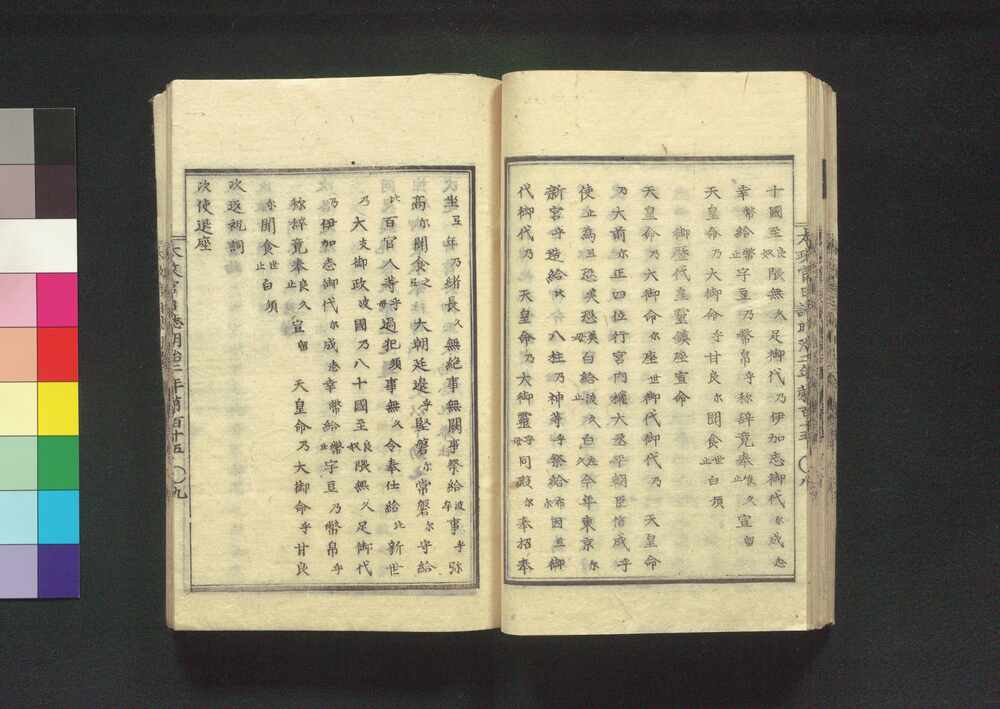 十國至良奴隈無久足御代乃伊加志御代尓成志
幸幣給止幣宇豆乃幣帛乎称辞竟奉止良久宣留
天皇命乃大御命乎甘良尓聞食世止白須
御歴代皇霊鎮座宣命
天皇命乃大御命尓座世御代御代乃天皇命
乃大前尓正四位行宮内権大丞平朝臣信成乎
使止為弖恐美恐美毛白給波久止白左今年東京尓
新宮乎造給比八柱乃神等乎祭給布因弖御
代御代乃天皇命乃大御霊乎毋同殿尓奉招奉
坐弖年乃緒長久無絶事無闕事祭給波牟事乎弥
高尓聞食之弖大朝廷邊乎堅磐尓常磐尓守給
比百官人等乎毋過犯須事無久令奉仕給比新世
乃大御政波國乃八十國至良奴隈無久足御代
乃伊加志御代尓成志幸幣給止幣宇豆乃幣帛乎
称辞竟奉止良久宣留天皇命乃大御命乎甘良
尓聞食世止白須
次返祝詞
次使退座